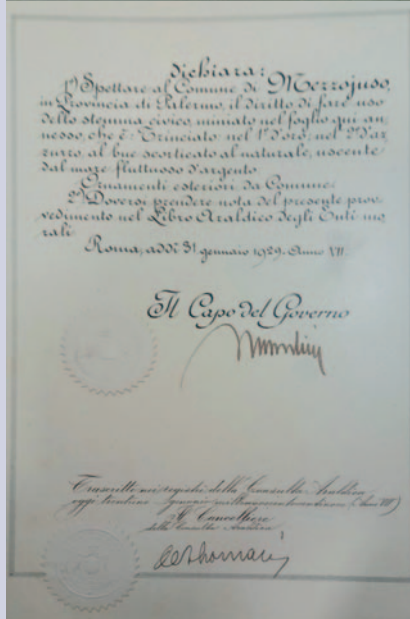 dichiara:
1º) Spettare al Comune di Mezzojuso,
in Provincia di Palermo, il diritto di fare uso
dello stemma civico, miniato nel foglio qui an-
nesso, che è: Trinciato nel 1º d'oro; nel 2º d'az-
zurro, al bue scorticato al naturale, uscente
dal mare fluttuoso d'argento.
Ornamenti esteriori da Comune.
2º) Doversi prendere nota del presente prov-
vedimento nel Libro Araldico degli Enti mo-
rali
Roma, addì 31 gennaio 1929. Anno VII
Il Capo del Governo
Mussolini
Trascritto nei registri della Consulta Araldica
oggi gennaio millenovecentoventinove (Anno VII)
Il Cancelliere
della Consulta Araldica